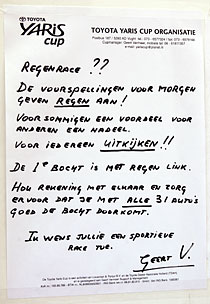 TOYOTA
YARIS
CUP
TOYOTA YARIS CUP ORGANISATIE
REGENRACE ??
DE VOORSPELLINGEN VOOR MORGEN
GEVEN REGEN AAN !
VOOR SOMMIGEN EEN VOORDEEL VOOR
ANDEREN EEN NADEEL.
VOOR IEDEREEN UITKIJKEN !!
DE 1e BOCHT IS MET REGEN LINK.
HOU REKENING MET ELKAAR EN ZORG
ERVOOR DAT JE MET ALLE 31 AUTO'S
GOED DE BOCHT DOORKOMT.
IK WENS JULLIE EEN SPORTIEVE
RACE TOE.
GEERT V.